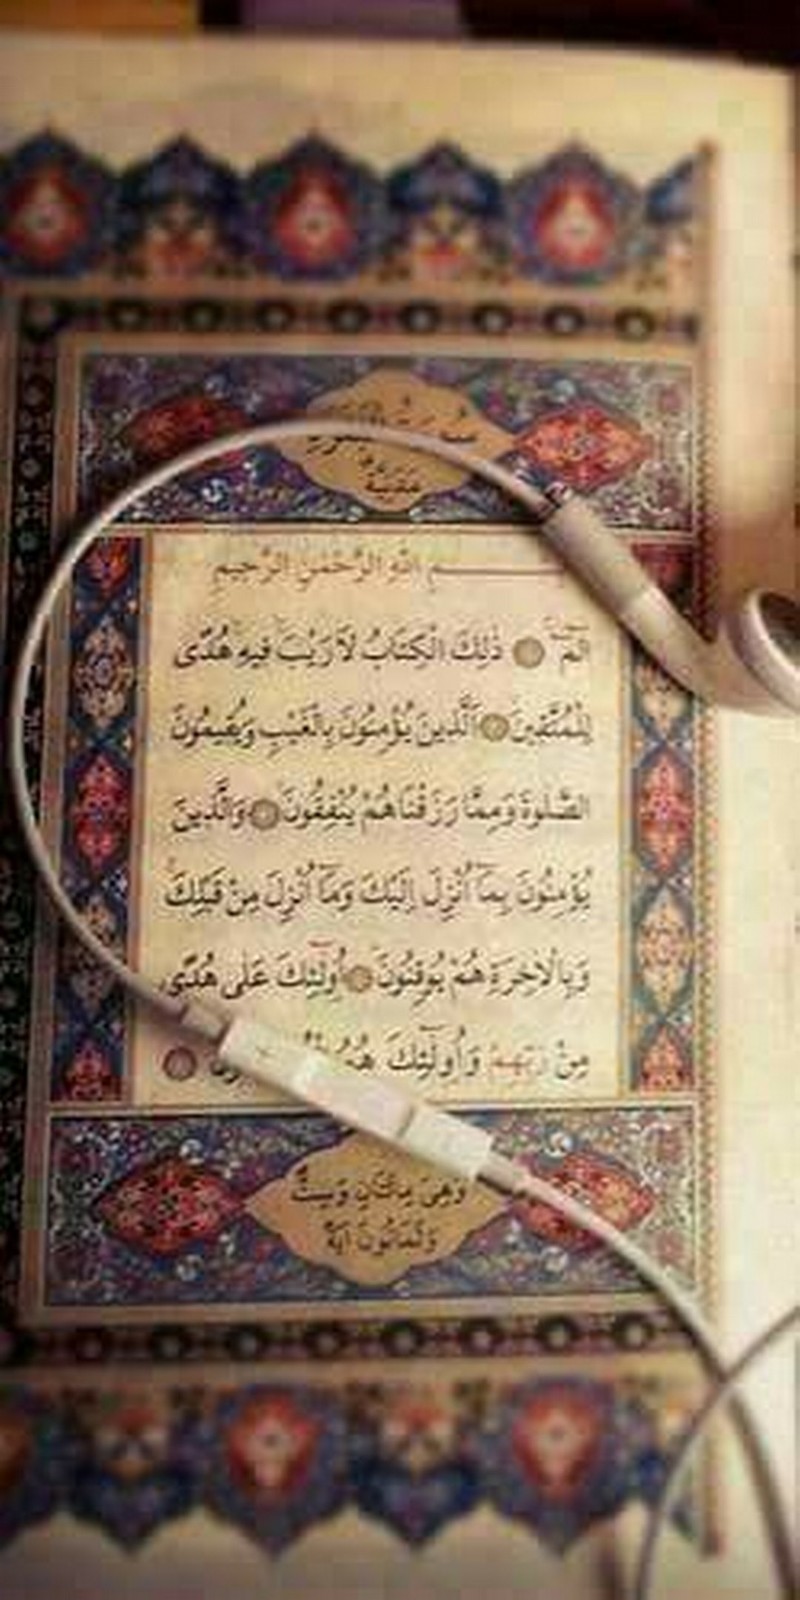 سُورَةُ الْبَقَرَةِ
مَدَنِيَّة
بِسْـــــــــمِ اللّٰهِ الرَّحْمٰنِ الرَّحِيمِ
الٓمٓ ۝ ذٰلِكَ الْكِتَابُ لَا رَيْبَ فِيهِ هُدًى
لِلْمُتَّقِينَ ۝ اَلَّذِينَ يُؤْمِنُونَ بِالْغَيْبِ وَيُقِيمُونَ
الصَّلٰوةَ وَمِمَّا رَزَقْنَاهُمْ يُنْفِقُونَ ۝ وَالَّذِينَ
يُؤْمِنُونَ بِمَٓا اُنْزِلَ اِلَيْكَ وَمَٓا اُنْزِلَ مِنْ قَبْلِكَ
وَبِالْاٰخِرَةِ هُمْ يُوقِنُونَ ۝ اُولٰٓئِكَ عَلٰى هُدًى
مِنْ رَبِّهِمْ وَاُولٰٓئِكَ هُمُ
وَهِيَ مِائَتَانِ وَسِتٌّ
وَثَمَانُونَ اٰيَةً